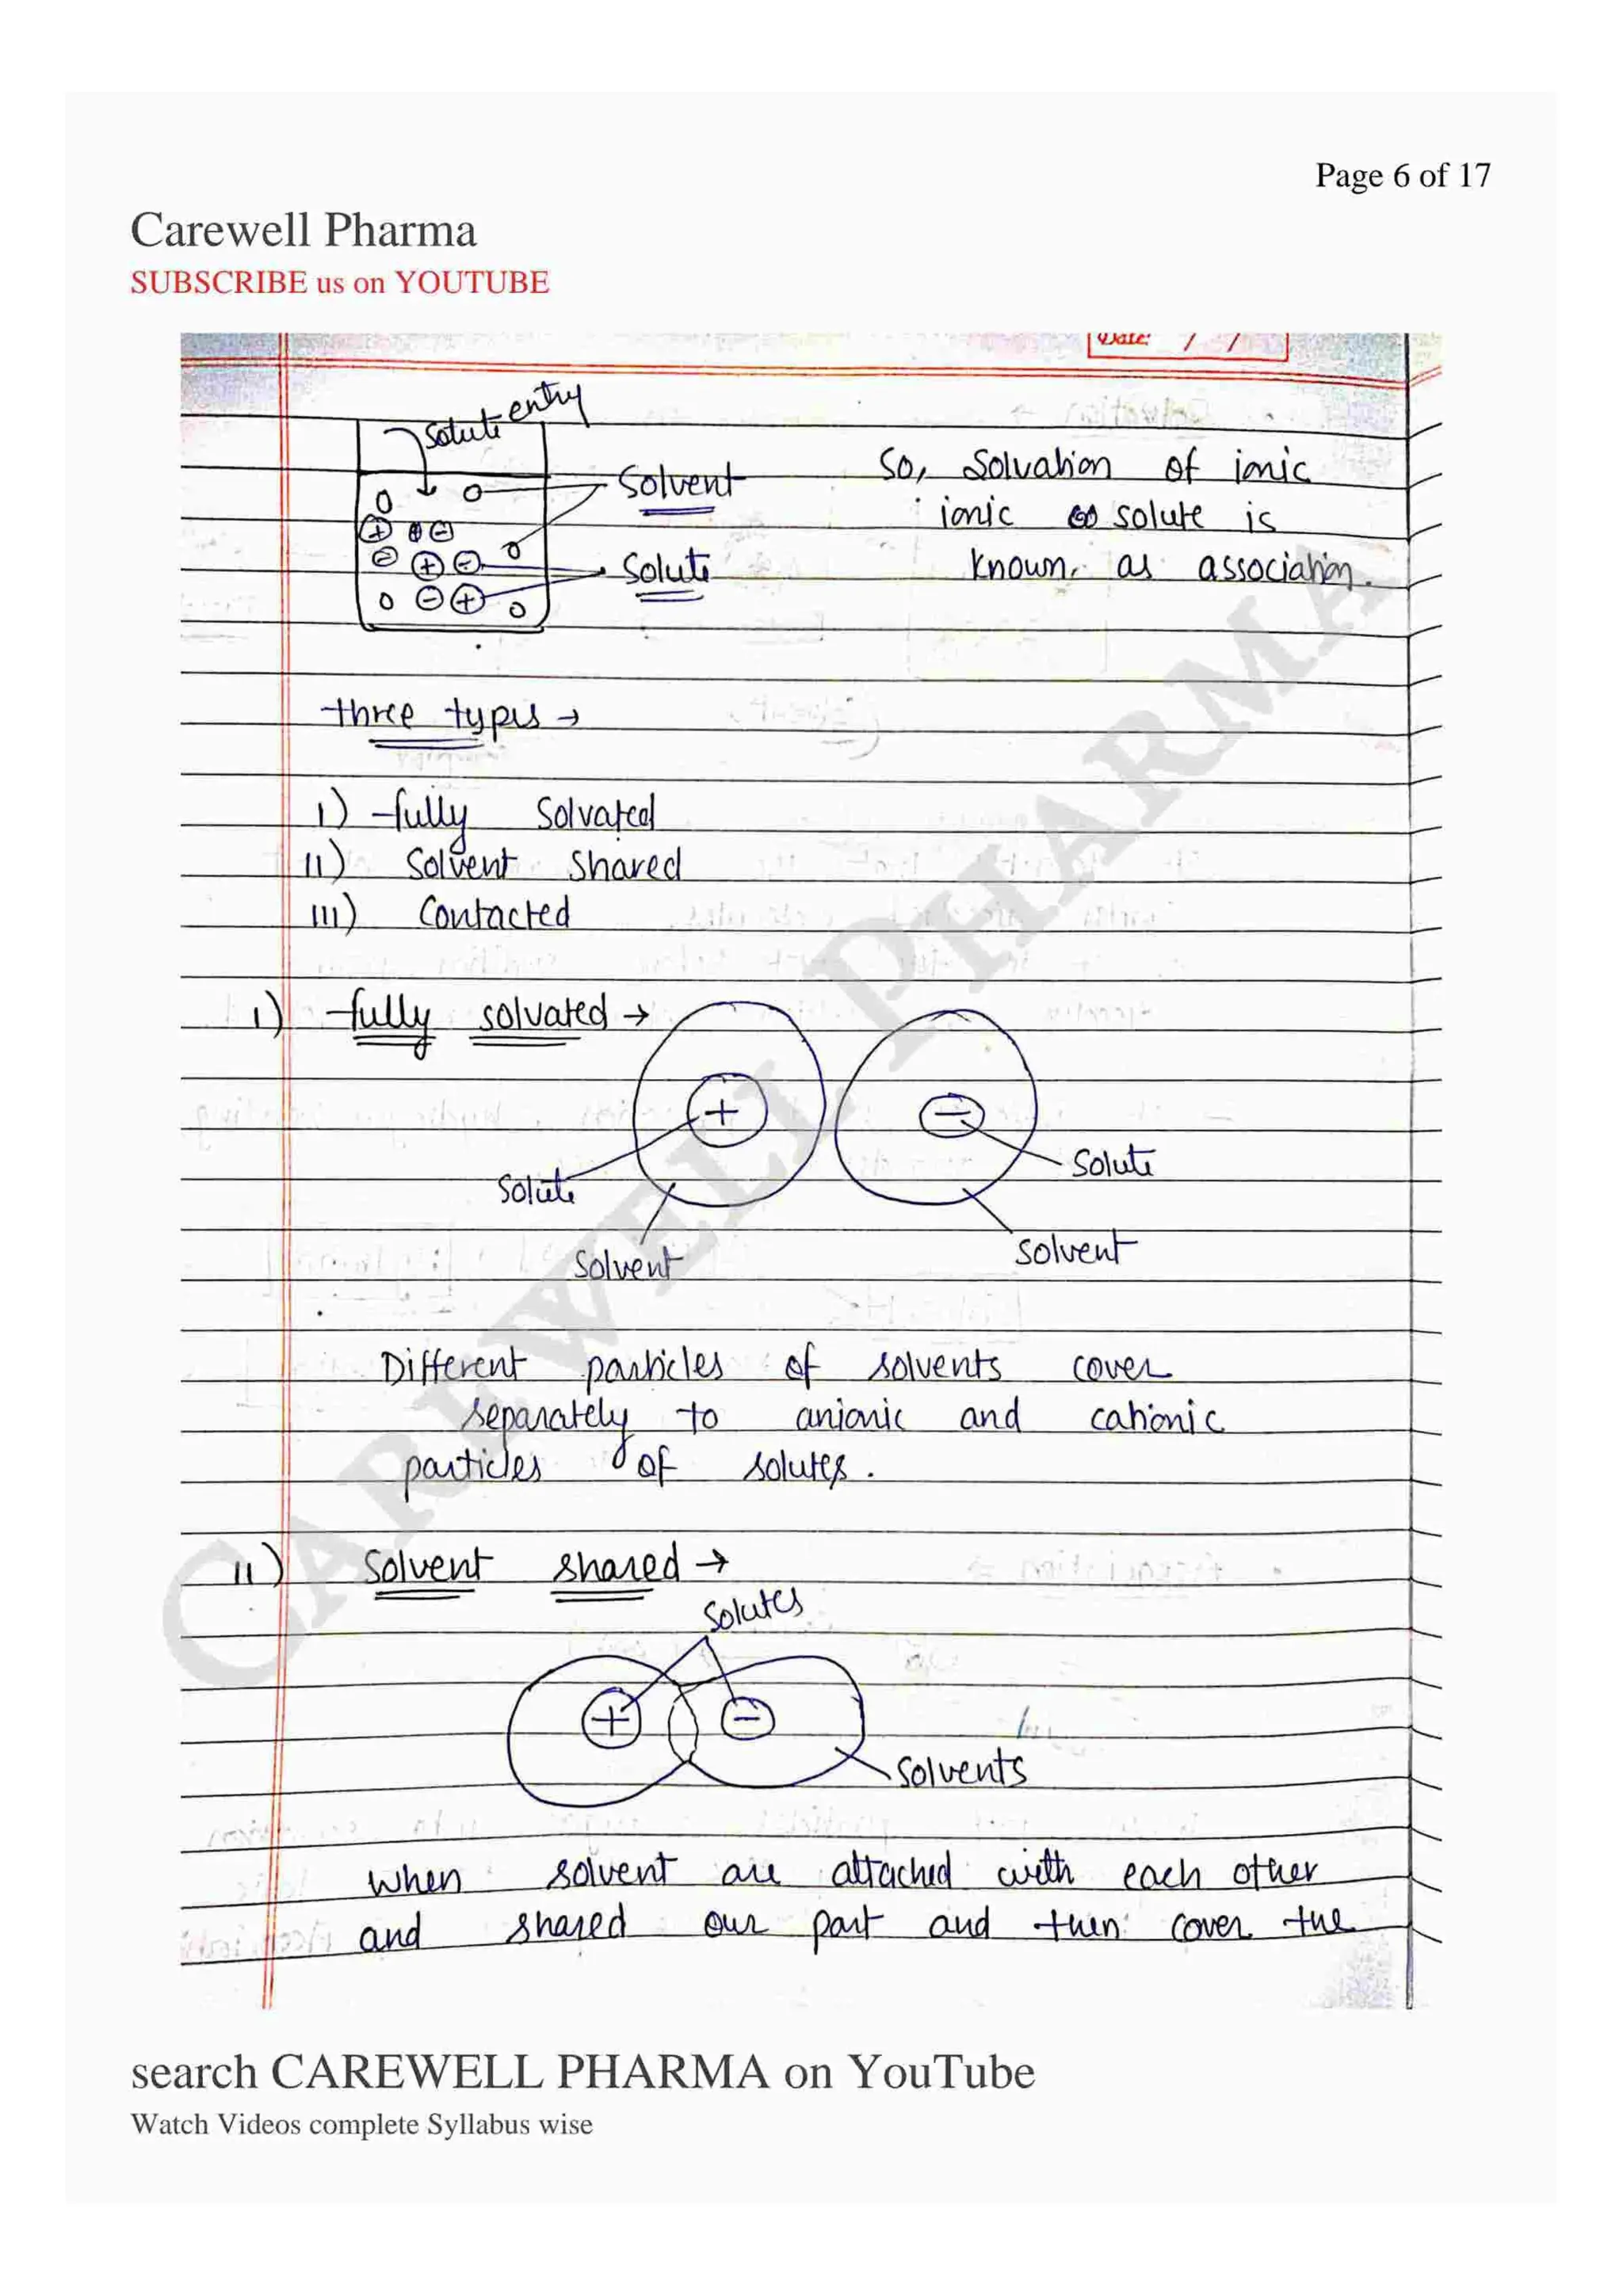 Page 6 of 17
Carewell Pharma
SUBSCRIBE us on YOUTUBE
Date: / /
Solute entry
Solvent
Solute
So, Solvation of ionic
ionic solute is
known as association.
three types →
I) fully Solvated
II) Solvent Shared
III) Contacted
I) fully solvated →
+
−
Solute
Solute
Solvent
Solvent
Different particles of solvents cover
separately to anionic and cationic
particles of solutes.
II) Solvent shared →
Solutes
+
−
Solvents
When solvent are attached with each other
and shared our part and then cover the
CAREWELL PHARMA
search CAREWELL PHARMA on YouTube
Watch Videos complete Syllabus wise